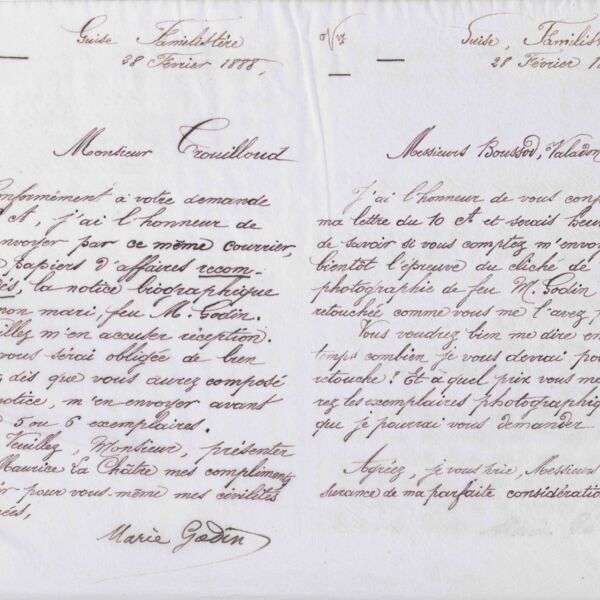 Guise Familistère
28 Février 1888,
Monsieur Trouilloud
Conformément à votre demande
Ct, j'ai l'honneur de
envoyer par ce même courrier,
papiers d'affaires recom-
la notice biographique
mon mari, feu M. Godin.
Veuillez m'en accuser réception.
vous serai obligée de bien
dès que vous aurez composé
notice, m'en envoyer avant
5 ou 6 exemplaires.
Veuillez, Monsieur, présenter
Maurice La Châtre mes compliments
pour vous-même mes civilités
Marie Godin
Guise, Familist
28 Février 18
Messieurs Boussod, Valadon
J'ai l'honneur de vous conf
ma lettre du 10 Ct et serais heur
de savoir si vous comptez m'envoy
bientôt l'épreuve du cliché de
photographie de feu M. Godin
retouchée comme vous me l'avez p
Vous voudrez bien me dire en
temps combien je vous devrai pou
retouche! Et à quel prix vous me
rez les exemplaires photographiq
que je pourrai vous demander
Agréez, je vous prie, Messieurs
surance de ma parfaite considération